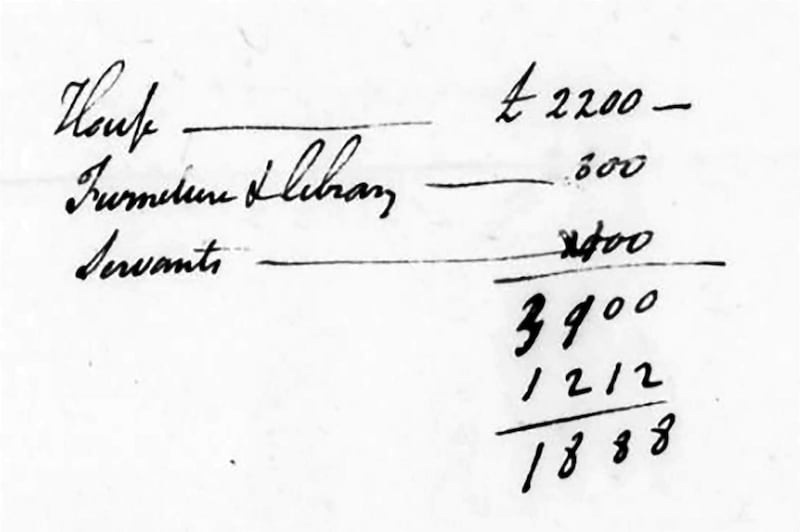 House £ 2200 —
Furneture & library 300
Servants
3100
1212
1888